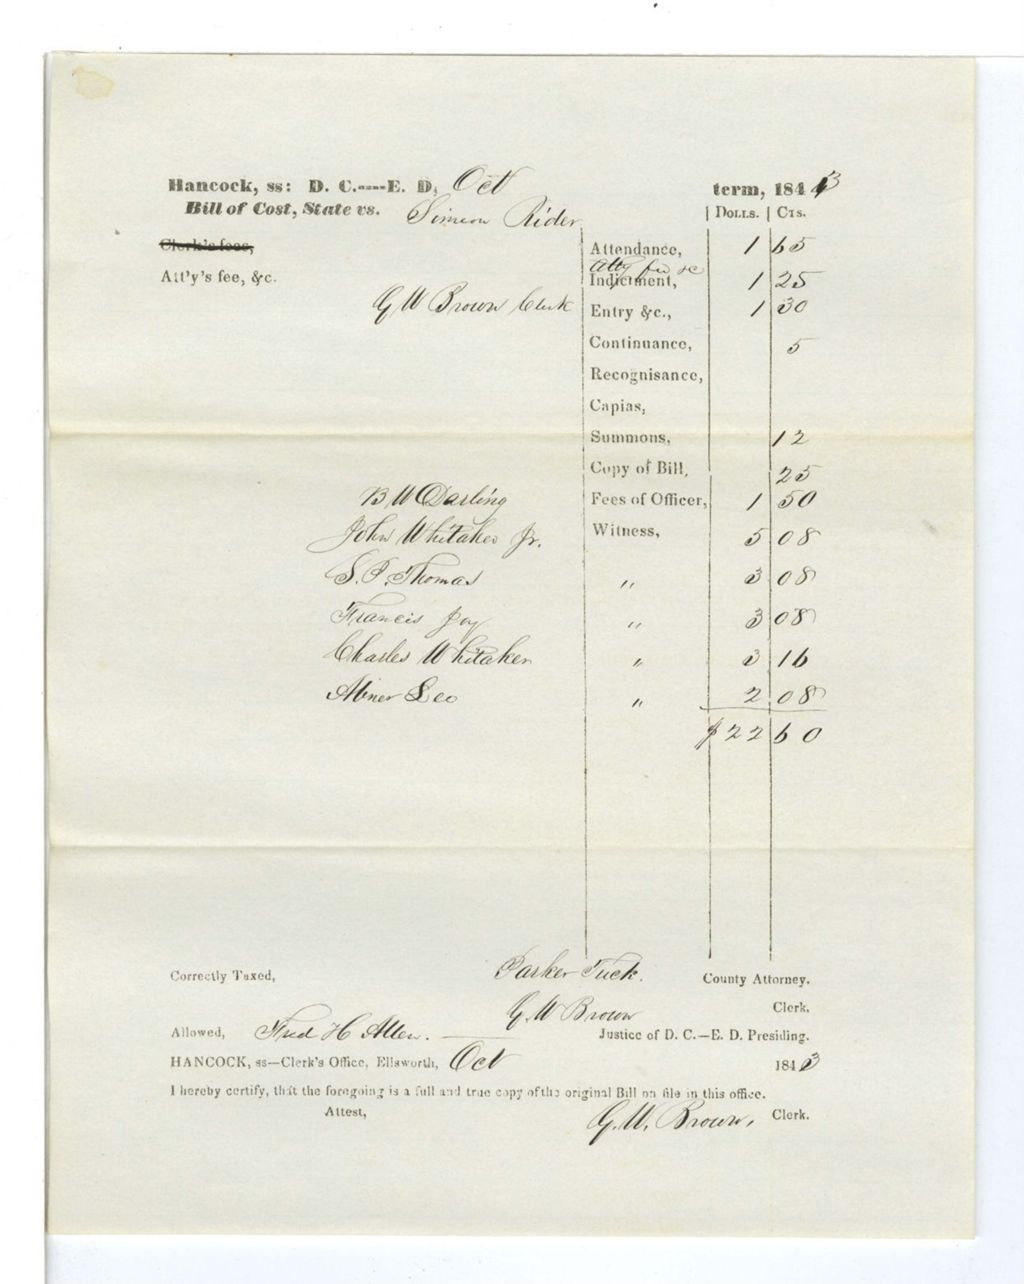 Hancock, ss: D. C.----E. D, Oct term, 1843
Bill of Cost, State vs. Simeon Rider | Dolls. | Cts.
Clerk's fees, Attendance, 1 65
Atty fee &c
Att'y's fee, &c. Indictment, 1 25
G W Brown Clerk Entry &c., 1 30
Continuance, 5
Recognisance,
Capias,
Summons, 12
Copy of Bill, 25
B W Darling Fees of Officer, 1 50
John Whitaker Jr. Witness, 5 08
S. P. Thomas " 3 08
Francis Joy " 3 08
Charles Whitaker " 3 16
Abner Lee " 2 08
$22 60
Correctly Taxed, Parker Tuck. County Attorney.
G. W Brown Clerk.
Allowed, Fred H Allen. Justice of D. C.—E. D. Presiding.
HANCOCK, ss—Clerk's Office, Ellsworth, Oct 1843
I hereby certify, that the foregoing is a full and true copy of the original Bill on file in this office.
Attest, G. W. Brown, Clerk.